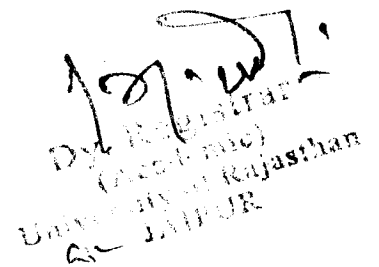 Dy. Registrar
(Academic)
University of Rajasthan
JAIPUR